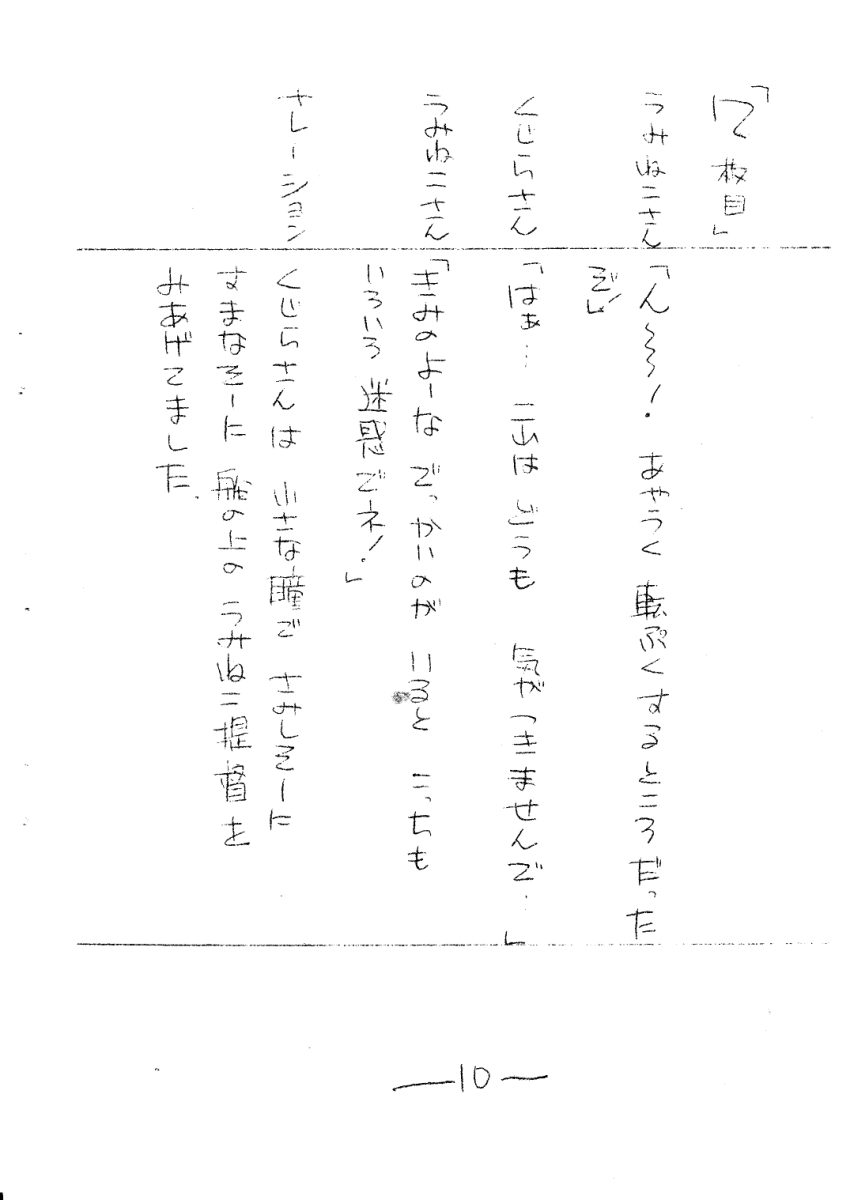 「12枚目」
うみねこさん
「ん〜〜〜! あやうく 転ぷくするところだった
ぞ!」
くじらさん
「はぁ… こりゃ どうも 気がつきませんで…」
うみねこさん
「きみのよーな でっかいのが いると こっちも
いろいろ 迷惑でネ!」
ナレーション
くじらさんは 小さな瞳で さみしそーに
すまなそーに 船の上の うみねこ提督を
みあげてました.
—10—